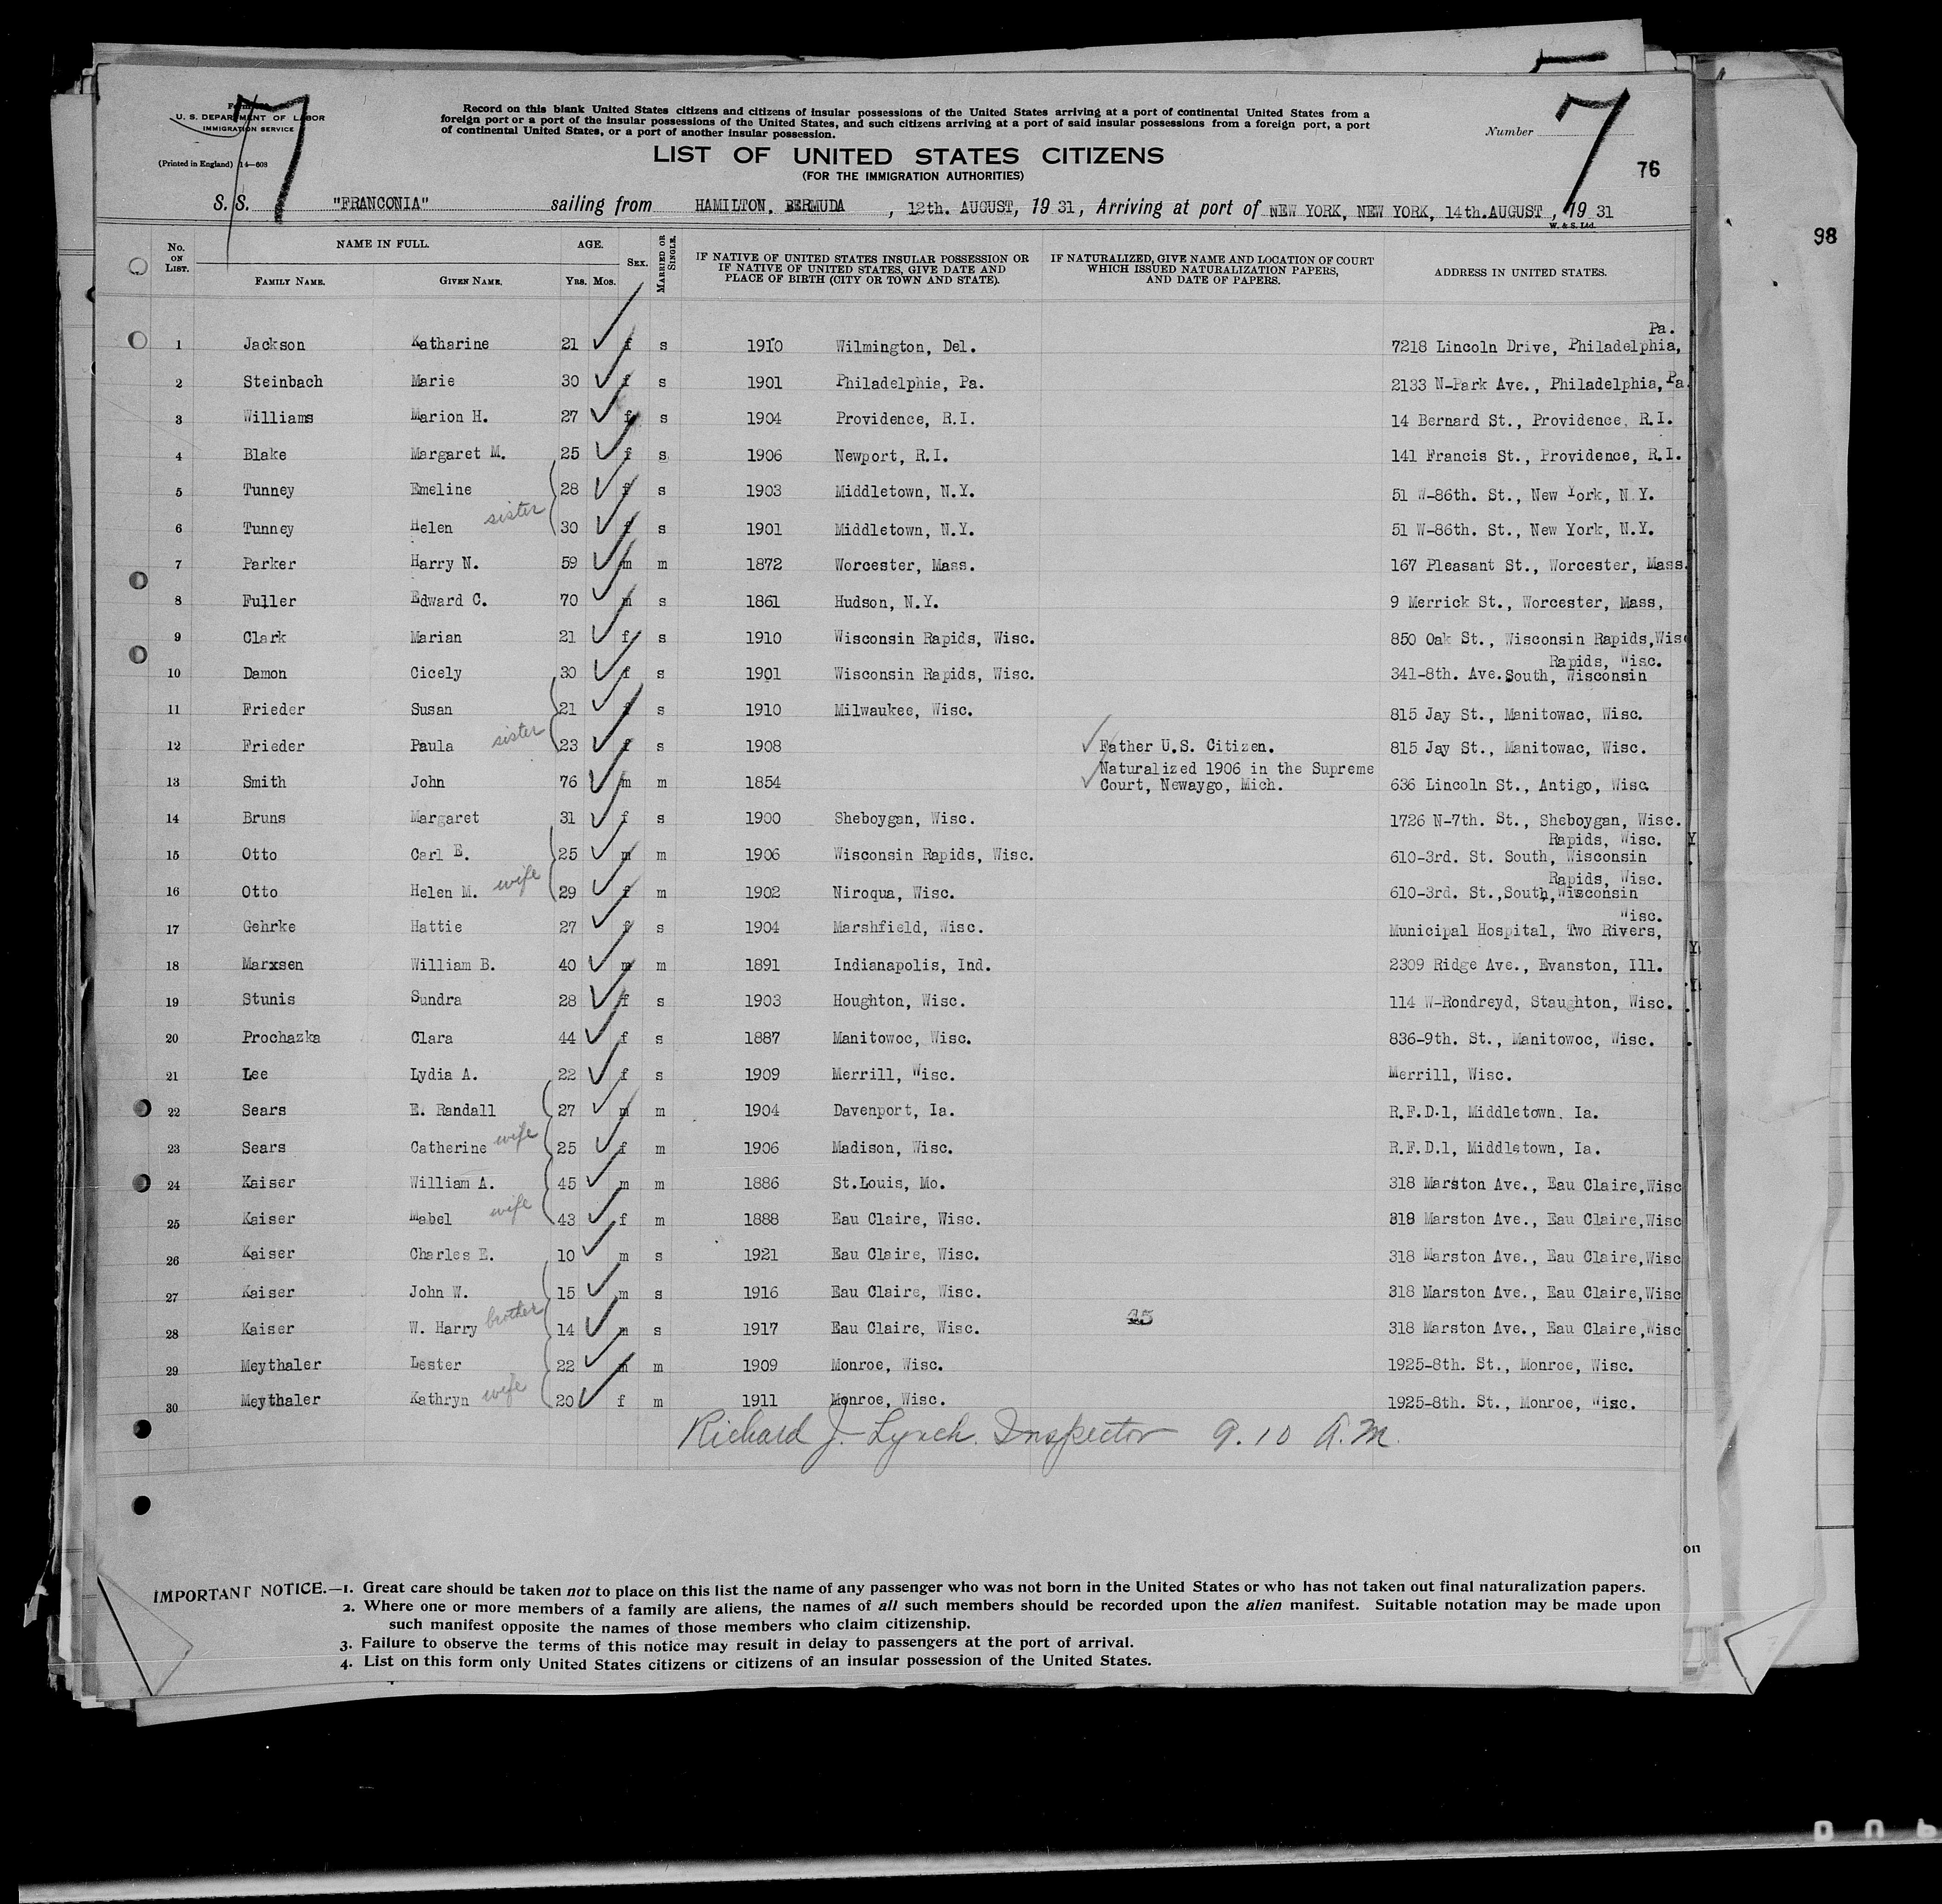 Form
U. S. DEPARTMENT OF LABOR
IMMIGRATION SERVICE
(Printed in England) 14—608
7
Record on this blank United States citizens and citizens of insular possessions of the United States arriving at a port of continental United States from a
foreign port or a port of the insular possessions of the United States, and such citizens arriving at a port of said insular possessions from a foreign port, a port
of continental United States, or a port of another insular possession.
Number
7
76
LIST OF UNITED STATES CITIZENS
(FOR THE IMMIGRATION AUTHORITIES)
S. S. "FRANCONIA" sailing from HAMILTON, BERMUDA, 12th. AUGUST, 19 31, Arriving at port of NEW YORK, NEW YORK, 14th.AUGUST, 19 31
W. & S. Ltd.
98
No. ON LIST. NAME IN FULL. FAMILY NAME. GIVEN NAME. AGE. Yrs. Mos. SEX. MARRIED OR SINGLE. IF NATIVE OF UNITED STATES INSULAR POSSESSION OR IF NATIVE OF UNITED STATES, GIVE DATE AND PLACE OF BIRTH (CITY OR TOWN AND STATE). IF NATURALIZED, GIVE NAME AND LOCATION OF COURT WHICH ISSUED NATURALIZATION PAPERS, AND DATE OF PAPERS. ADDRESS IN UNITED STATES.
1 Jackson Katharine 21 f s 1910 Wilmington, Del. 7218 Lincoln Drive, Philadelphia, Pa.
2 Steinbach Marie 30 f s 1901 Philadelphia, Pa. 2133 N-Park Ave., Philadelphia, Pa
3 Williams Marion H. 27 f s 1904 Providence, R.I. 14 Bernard St., Providence, R.I.
4 Blake Margaret M. 25 f s 1906 Newport, R.I. 141 Francis St., Providence, R.I.
5 Tunney Emeline 28 f s 1903 Middletown, N.Y. 51 W-86th. St., New York, N.Y.
6 Tunney Helen sister 30 f s 1901 Middletown, N.Y. 51 W-86th. St., New York, N.Y.
7 Parker Harry N. 59 m m 1872 Worcester, Mass. 167 Pleasant St., Worcester, Mass.
8 Fuller Edward C. 70 m s 1861 Hudson, N.Y. 9 Merrick St., Worcester, Mass,
9 Clark Marian 21 f s 1910 Wisconsin Rapids, Wisc. 850 Oak St., Wisconsin Rapids,Wisc
10 Damon Cicely 30 f s 1901 Wisconsin Rapids, Wisc. 341-8th. Ave. South, Wisconsin Rapids, Wisc.
11 Frieder Susan 21 f s 1910 Milwaukee, Wisc. 815 Jay St., Manitowac, Wisc.
12 Frieder Paula sister 23 f s 1908 Father U.S. Citizen. 815 Jay St., Manitowac, Wisc.
13 Smith John 76 m m 1854 Naturalized 1906 in the Supreme Court, Newaygo, Mich. 636 Lincoln St., Antigo, Wisc.
14 Bruns Margaret 31 f s 1900 Sheboygan, Wisc. 1726 N-7th. St., Sheboygan, Wisc.
15 Otto Carl E. 25 m m 1906 Wisconsin Rapids, Wisc. 610-3rd. St. South, Wisconsin Rapids, Wisc.
16 Otto Helen M. wife 29 f m 1902 Niroqua, Wisc. 610-3rd. St.,South, Wisconsin Rapids, Wisc.
17 Gehrke Hattie 27 f s 1904 Marshfield, Wisc. Municipal Hospital, Two Rivers, Wisc.
18 Marxsen William B. 40 m m 1891 Indianapolis, Ind. 2309 Ridge Ave., Evanston, Ill.
19 Stunis Sundra 28 f s 1903 Houghton, Wisc. 114 W-Rondreyd, Staughton, Wisc.
20 Prochazka Clara 44 f s 1887 Manitowoc, Wisc. 836-9th. St., Manitowoc, Wisc.
21 Lee Lydia A. 22 f s 1909 Merrill, Wisc. Merrill, Wisc.
22 Sears E. Randall 27 m m 1904 Davenport, Ia. R.F.D.1, Middletown. Ia.
23 Sears Catherine wife 25 f m 1906 Madison, Wisc. R.F.D.1, Middletown, Ia.
24 Kaiser William A. 45 m m 1886 St.Louis, Mo. 318 Marston Ave., Eau Claire,Wisc
25 Kaiser Mabel wife 43 f m 1888 Eau Claire, Wisc. 318 Marston Ave., Eau Claire,Wisc
26 Kaiser Charles E. 10 m s 1921 Eau Claire, Wisc. 318 Marston Ave., Eau Claire,Wisc
27 Kaiser John W. 15 m s 1916 Eau Claire, Wisc. 318 Marston Ave., Eau Claire,Wisc
28 Kaiser W. Harry brother 14 m s 1917 Eau Claire, Wisc. 318 Marston Ave., Eau Claire,Wisc
29 Meythaler Lester 22 m m 1909 Monroe, Wisc. 1925-8th. St., Monroe, Wisc.
30 Meythaler Kathryn wife 20 f m 1911 Monroe, Wisc. 1925-8th. St., Monroe, Wisc.
Richard J. Lynch. Inspector 9.10 A.M.
on
IMPORTANT NOTICE.—1. Great care should be taken not to place on this list the name of any passenger who was not born in the United States or who has not taken out final naturalization papers.
2. Where one or more members of a family are aliens, the names of all such members should be recorded upon the alien manifest. Suitable notation may be made upon
such manifest opposite the names of those members who claim citizenship.
3. Failure to observe the terms of this notice may result in delay to passengers at the port of arrival.
4. List on this form only United States citizens or citizens of an insular possession of the United States.